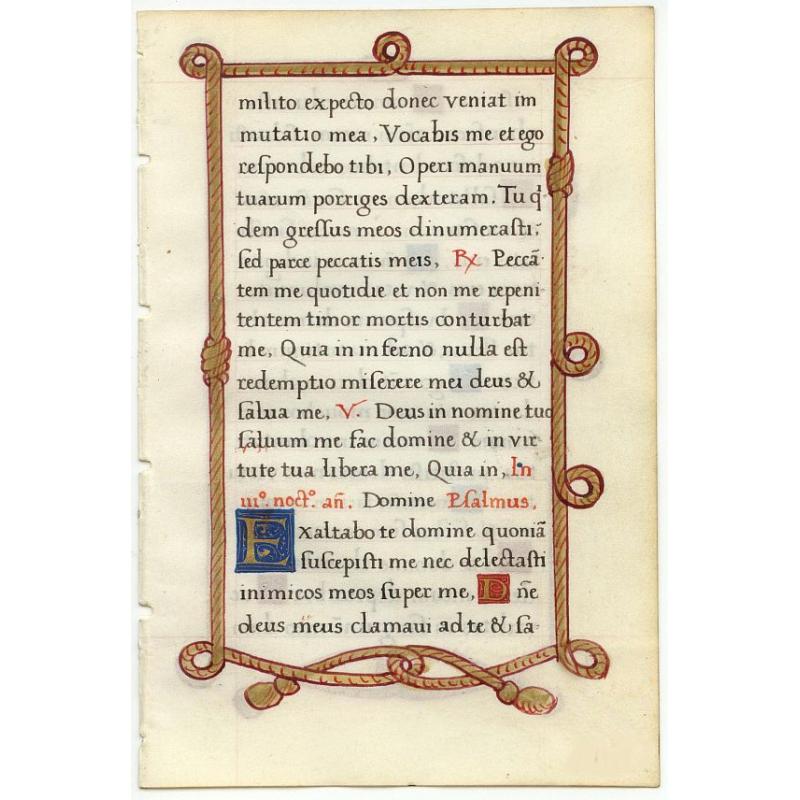 milito expecto donec veniat im
mutatio mea, Vocabis me et ego
reſpondebo tibi, Operi manuum
tuarum porriges dexteram. Tu q'
dem greſſus meos dinumeraſti;
ſed parce peccatis meis, ℞ Peccā-
tem me quotidie et non me repeni
tentem timor mortis conturbat
me, Quia in inferno nulla eſt
redemptio miſerere mei deus &
ſalua me, V. Deus in nomine tuo
ſaluum me fac domine & in vir
tute tua libera me, Quia in, In
iii°. noct°. an̄. Domine Pſalmus.
Exaltabo te domine quoniā
ſuscepiſti me nec delectaſti
inimicos meos ſuper me, Dn̄e
deus meus clamaui ad te & ſa-